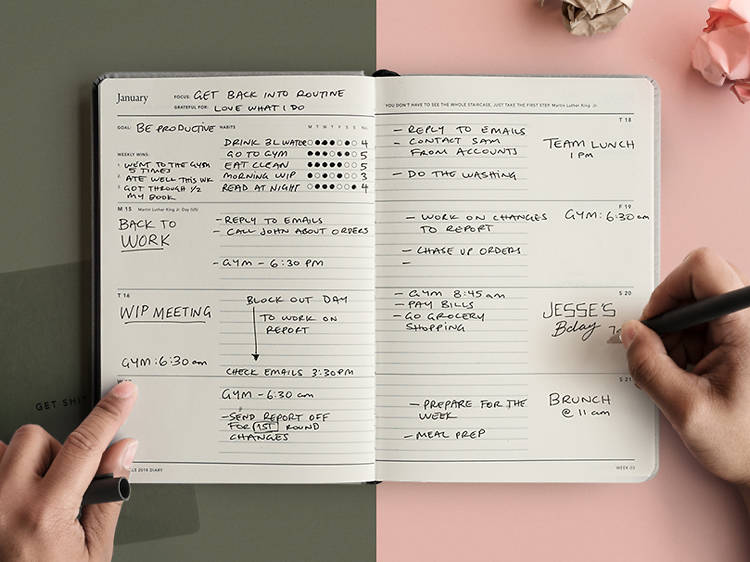 January
FOCUS: GET BACK INTO ROUTINE
GRATEFUL FOR: LOVE WHAT I DO
GOAL: BE PRODUCTIVE
HABITS M T W T F S S No.
DRINK 3L WATER 4
GO TO GYM 5
EAT CLEAN 5
MORNING WIP 3
READ AT NIGHT 4
WEEKLY WINS:
1. WENT TO THE GYM
5 TIMES
2. ATE WELL THIS WK
3. GOT THROUGH 1/2
MY BOOK
M 15 Martin Luther King Jr. Day (US)
BACK TO
WORK
- REPLY TO EMAILS
- CALL JOHN ABOUT ORDERS
- GYM - 6:30 PM
T 16
WIP MEETING
GYM: 6:30 am
BLOCK OUT DAY
TO WORK ON
REPORT
CHECK EMAILS 3:30PM
GYM - 6:30 am
- SEND REPORT OFF
FOR 1ST ROUND
CHANGES
2018 DIARY
GET
YOU DON'T HAVE TO SEE THE WHOLE STAIRCASE, JUST TAKE THE FIRST STEP. Martin Luther King Jr.
T 18
- REPLY TO EMAILS
- CONTACT SAM
FROM ACCOUNTS
- DO THE WASHING
TEAM LUNCH
1 PM
F 19
- WORK ON CHANGES
TO REPORT
- CHASE UP ORDERS
-
GYM: 6:30 am
S 20
- GYM 8:45 am
- PAY BILLS
- GO GROCERY
SHOPPING
JESSE'S
Bday
S 21
- PREPARE FOR THE
WEEK
- MEAL PREP
BRUNCH
@ 11 am
WEEK 03